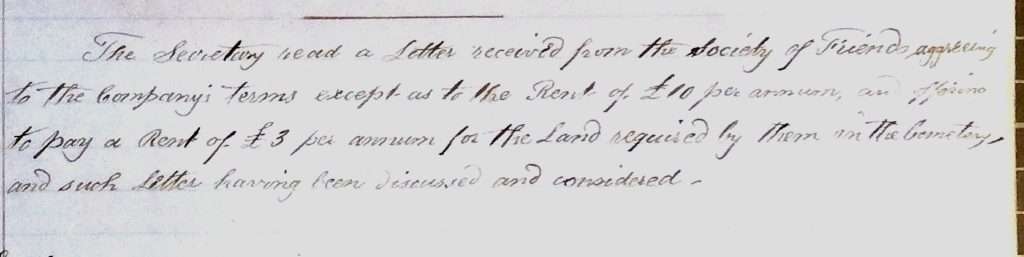 The Secretary read a Letter received from the Society of Friends, agreeing
to the Company's terms except as to the Rent of £10 per annum, and offering
to pay a Rent of £3 per annum for the Land required by them in the Cemetery,
and such Letter having been discussed and considered -